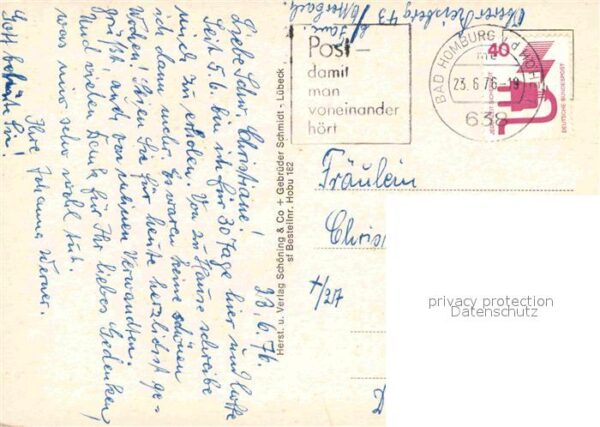 23.6.76.
Liebe Schw. Christiane!
Seit 5.6. bin ich für 30 Tage hier und hoffe
mich zu erholen. Von zu Hause schreibe
ich dann mehr. Es waren keine schönen
Wochen! Seien Sie für heute herzlichst ge-
grüßt, auch von meinen Verwandten.
Und vielen Dank für Ihr liebes Gedenken,
was mir sehr wohl tut.
Ihre Johanna Werner.
Gott behüte Sie!
Herst. u. Verlag Schöning & Co + Gebrüder Schmidt - Lübeck
sf Bestellnr. Hobu 162
Post -
damit
man
voneinander
hört
BAD HOMBURG V D HÖHE
23.6.76-19
638
40
JEDERZEIT SICHERHEIT
DEUTSCHE BUNDESPOST
Fräulein
Chris
privacy protection
Datenschutz